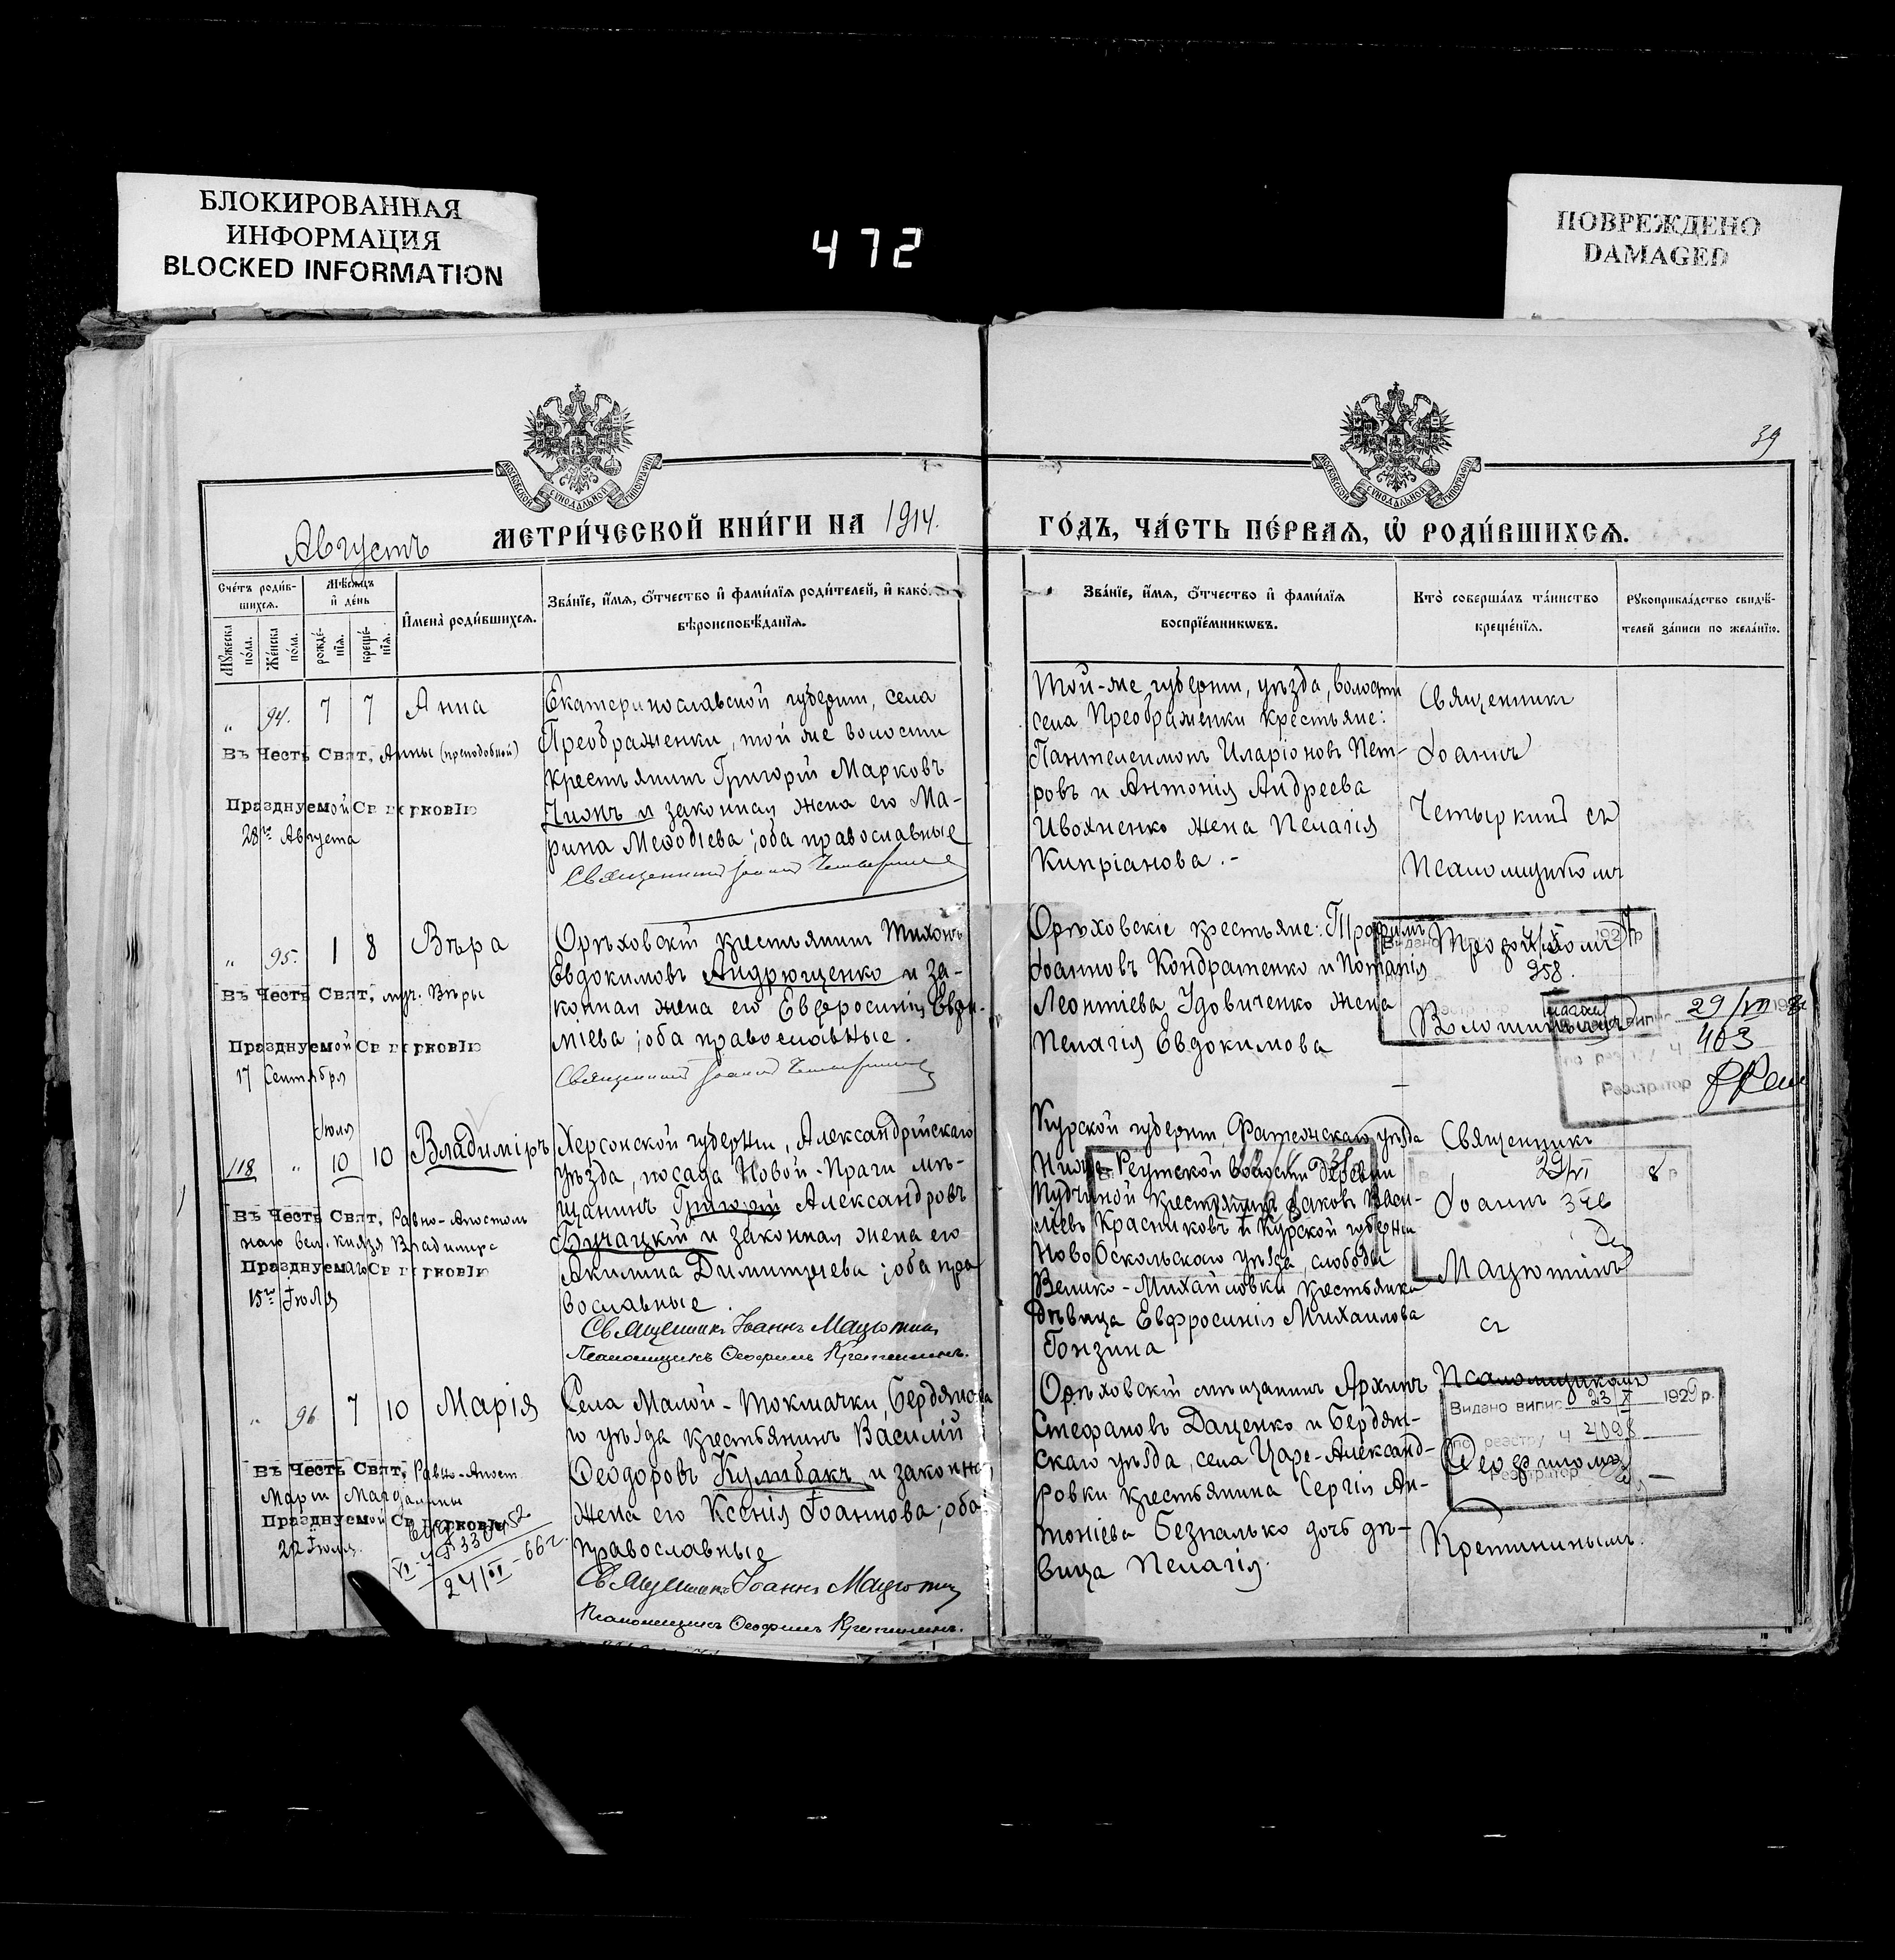 БЛОКИРОВАННАЯ
ИНФОРМАЦИЯ
BLOCKED INFORMATION
472
ПОВРЕЖДЕНО
DAMAGED
39
МОСКОВСКОЙ СѴНОДАЛЬНОЙ ТИПОГРАФІИ
МОСКОВСКОЙ СѴНОДАЛЬНОЙ ТИПОГРАФІИ
Августъ
МЕТРИ́ЧЕСКОЙ КНИ́ГИ НА 1914.
ГО́ДЪ, ЧА́СТЬ ПЕ́РВАЯ, Ѡ РОДИ́ВШИХСЯ.
Сче́тъ роди́вшихся.
Мужеска по́ла.
Же́нска по́ла.
Мѣ́сяцъ и де́нь
рожде́нія.
креще́нія.
Имена̀ роди́вшихся.
Зва́ніе, и́мя, о́тчество и фами́лія роди́телей, и како́
вѣроисповѣ́данія.
Зва́ніе, и́мя, о́тчество и фами́лія
воспріе́мниковъ.
Кто̀ соверша́лъ та́инство
креще́нія.
Рукоприкла́дство свидѣ́-
телей за́писи по жела́нію.
„ 94. 7 7 Анна
Въ Честь Свят. Анны (преподобной)
Празднуемой Св церковію
28го Августа
Екатеринославской губерніи, села
Преображенки, той же волости
крестьянинъ Григорій Марковъ
Чионъ и законная жена его Ма-
рина Меѳодіева; оба православные
Священникъ Іоаннъ Четыркинъ
Той-же губерніи, уѣзда, волости
села Преображенки крестьяне:
Пантелеимонъ Иларіоновъ Пет-
ровъ и Антонія Андреева
Ивояненко жена Пелагія
Кипріанова.-
Священникъ
Іоаннъ
Четыркинъ съ
Псаломщикомъ
„ 95. 1 8 Вѣра
Въ Честь Свят. муч. Вѣры
Празднуемой Св церковію
17 Сентября
Орѣховскій крестьянинъ Тихонъ
Евдокимовъ Андрющенко и за-
конная жена его Евфросинія Евфи-
міева; оба православные.
Священникъ Іоаннъ Четыркинъ
Орѣховскіе крестьяне: Трофимъ
Іоанновъ Кондратенко и
Леонтіева Удовиченко жена
Пелагія Евдокимова
958.
29/VII
403
Реєстратор
118 „ Іюля 10 10 Владиміръ
Въ Честь Свят. Равно-Апостоль
наго вел. князя Владимира
Празднуемаго Св церковію
15го Іюля
Херсонской губерніи, Александрійскаго
уѣзда, посада Новой-Праги мѣ-
щанинъ Григорій Александровъ
Бучацкій и законная жена его
Акилина Димитріева; оба пра
вославные.
Священникъ Іоаннъ Мацютинъ
Псаломщикъ Ѳеофилъ Кретининъ.
Курской губерніи, Фатежскаго уѣзда
Нижне-Реутской волости деревни
крестьянинъ Іаковъ Васи-
льевъ Красниковъ и Курской губерніи
Ново Оскольскаго уѣзда, слободы
Велико-Михайловки крестьянка
дѣвица Евфросинія Михаилова
Гонзина
Священникъ
29/VI
Іоаннъ
Мацютинъ
съ
Псаломщикомъ
„ 96 7 10 Марія
Въ Честь Свят. Равно-Апост
Маріи Магдалины
Празднуемой Св церковію
22 Іюля.
24/VI-66г.
Села Малой-Токмачки, Бердянска
го уѣзда крестьянинъ Василій
Ѳеодоровъ Кулибакъ и законная
жена его Ксенія Іоаннова; оба
православные
Священникъ Іоаннъ Мацютинъ
Псаломщикъ Ѳеофилъ Кретининъ.
Орѣховскій мѣщанинъ Архипъ
Стефановъ Даценко и Бердян-
скаго уѣзда, села Царе-Александ-
ровки крестьянина Сергія Ан-
тоніева Безпалько дочь дѣ-
вица Пелагія.
Видано випис 23/X 1929 р.
по реєстру ч 4098
Реєстратор
Ѳеофиломъ
Кретининымъ.